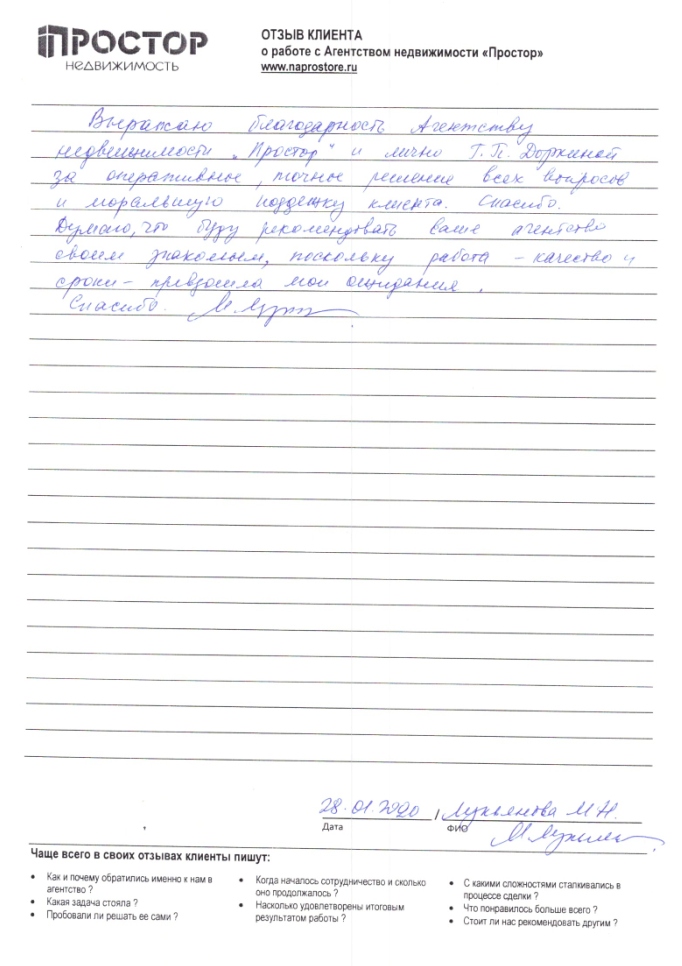 ПРОСТОР
НЕДВИЖИМОСТЬ
ОТЗЫВ КЛИЕНТА
о работе с Агентством недвижимости «Простор»
www.naprostore.ru
Выражаю благодарность Агентству
недвижимости „Простор" и лично Т.П. Доркиной
за оперативное, точное решение всех вопросов
и моральную поддежку клиента. Спасибо.
Думаю, что буду рекомендовать ваше агентство
своим знакомым, поскольку работа – качество и
сроки – превзошла мои ожидания.
Спасибо.
28.01.2020 / Лукьянова М.Н.
Дата ФИО
Чаще всего в своих отзывах клиенты пишут:
• Как и почему обратились именно к нам в
агентство ?
• Какая задача стояла ?
• Пробовали ли решать ее сами ?
• Когда началось сотрудничество и сколько
оно продолжалось ?
• Насколько удовлетворены итоговым
результатом работы ?
• С какими сложностями сталкивались в
процессе сделки ?
• Что понравилось больше всего ?
• Стоит ли нас рекомендовать другим ?